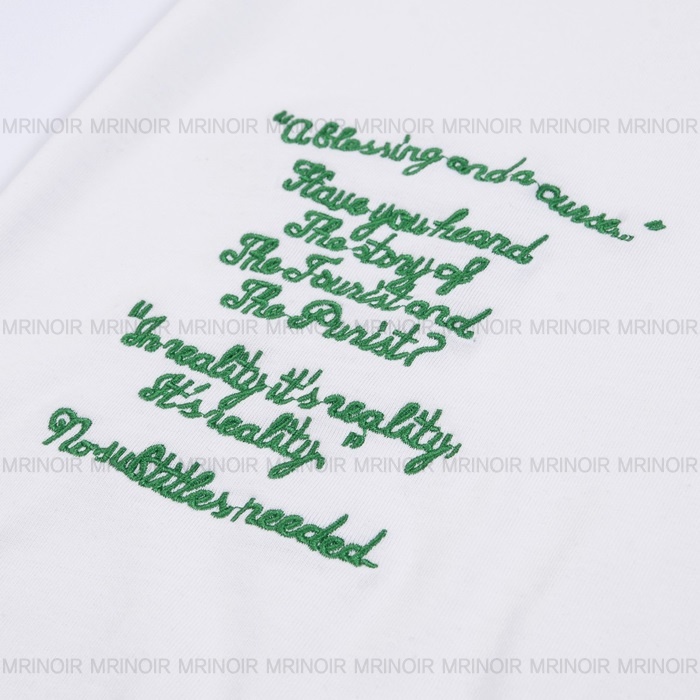 "A blessing and a curse..."
Have you heard
The story of
The Tourist and
The Purist?
"In reality it's reality,
It's reality."
No subtitles needed
MRINOIR MRINOIR MRINOIR MRINOIR MRINOIR MRINOIR MRINOIR MRINOIR
MRINOIR MRINOIR MRINOIR MRINOIR MRINOIR MRINOIR MRINOIR MRINOIR
MRINOIR MRINOIR MRINOIR MRINOIR MRINOIR MRINOIR MRINOIR MRINOIR
MRINOIR MRINOIR MRINOIR MRINOIR MRINOIR MRINOIR MRINOIR MRINOIR